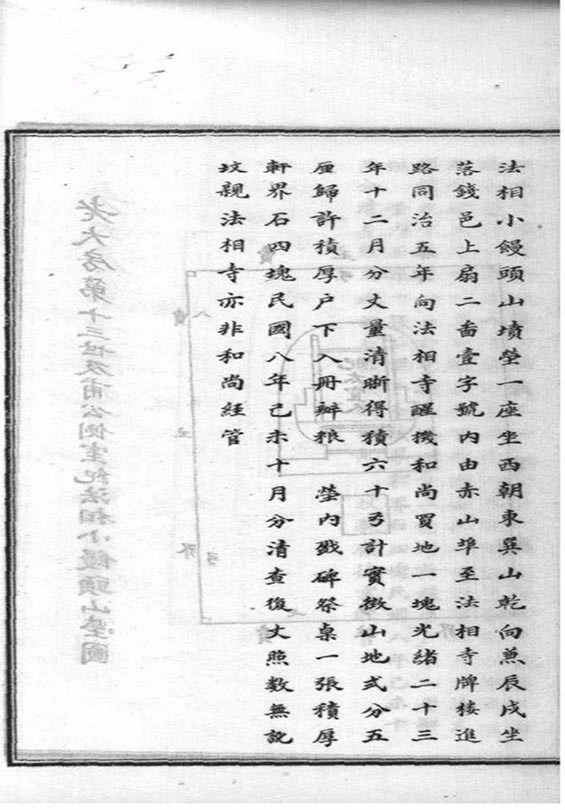 法相小饅頭山墳塋一座坐西朝東巽山乾向兼辰戌坐
落錢邑上扇二啚壹字號內由赤山埠至法相寺牌樓進
路同治五年向法相寺醒機和尚買地一塊光緒二十三
年十二月分丈量清晰得積六十弓計實徵山地弍分五
厘歸許積厚户下入冊辦粮　塋內戤碑祭桌一張積厚
軒界石四塊民國八年己未十月分清查復丈照數無訛
坟親法相寺亦非和尚經管
老大房第十三世及甫公側室紀法相小饅頭山塋圖